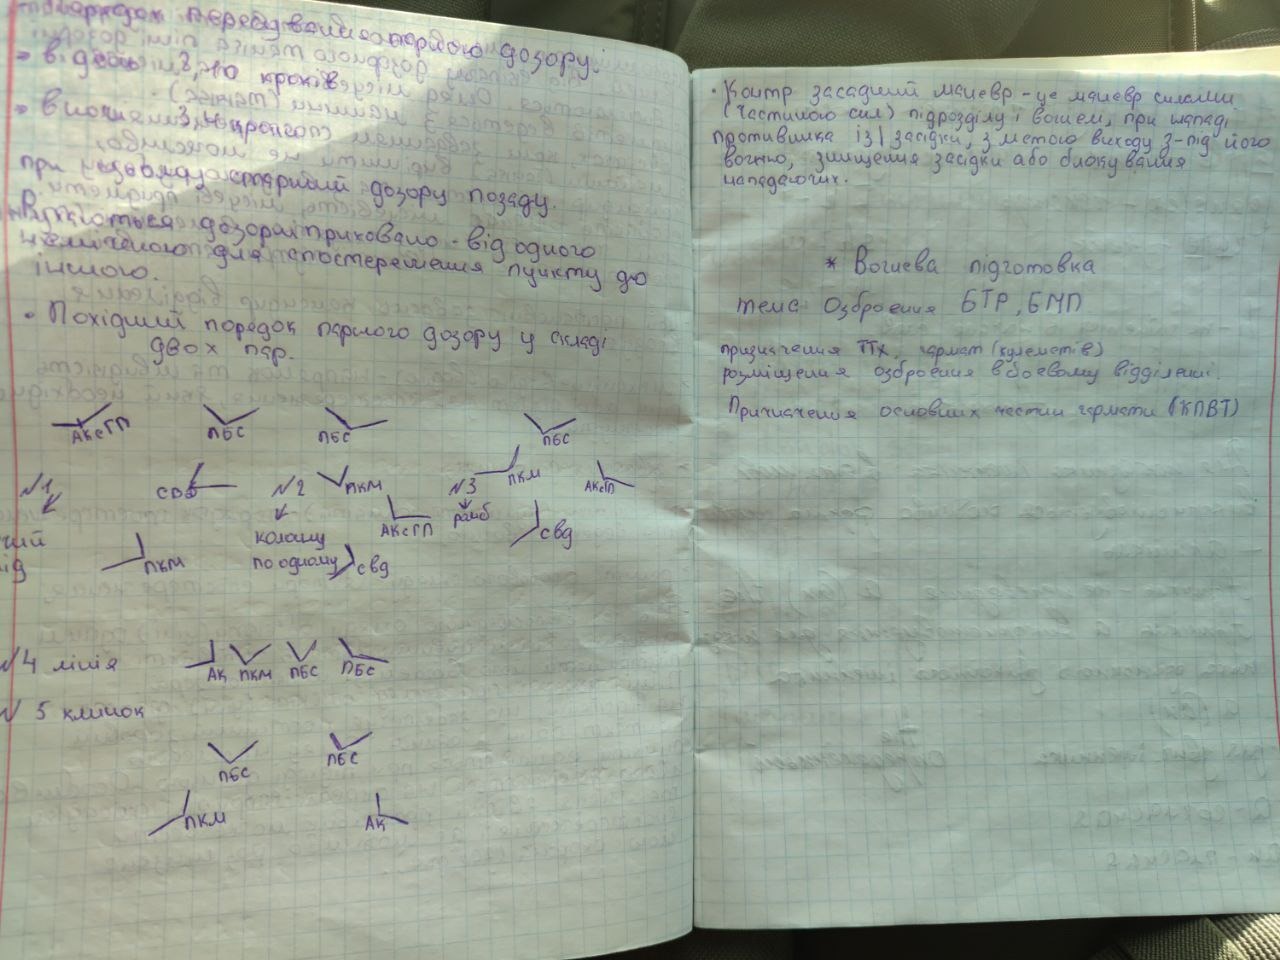 порядок пересування парного дозору:
вдень 8-10 кроків
вночі 3-4 кроків
при цьому старший дозору позаду.
Рухаються дозорні приховано - від одного
наміченого для спостереження пункту до
іншого.
• Похідний порядок парного дозору у складі
двох пар.
АКсГП ПБС ПБС ПБС
№1 СВД №2 ПКМ №3 ПКМ АКсГП
АКсГП ромб СВД
ПКМ колону
по одному СВД
№4 лінія АК ПКМ ПБС ПБС
№ 5 клинок
ПБС ПБС
ПКМ АК
• Контр засадний маневр - це маневр силами
(частиною сил) підрозділу і вогнем, при нападі
противника із засідки, з метою виходу з-під його
вогню, знищення засідки або блокування
нападаючих.
* Вогнева підготовка
тема: Озброєння БТР, БМП
призначення ТТХ, гармат (кулеметів)
розміщення озброєння в боєвому відділені.
Призначення основних частин гармати (КПВТ)